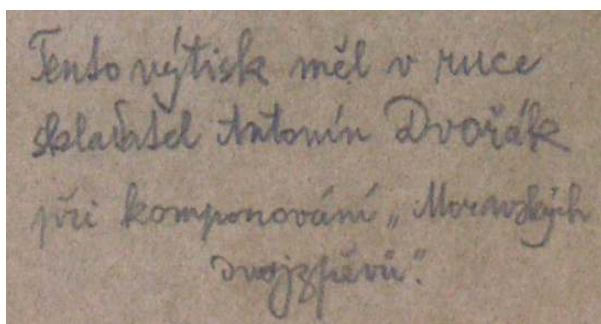 Tento výtisk měl v ruce
skladatel Antonín Dvořák
při komponování „Moravských
dvojzpěvů".